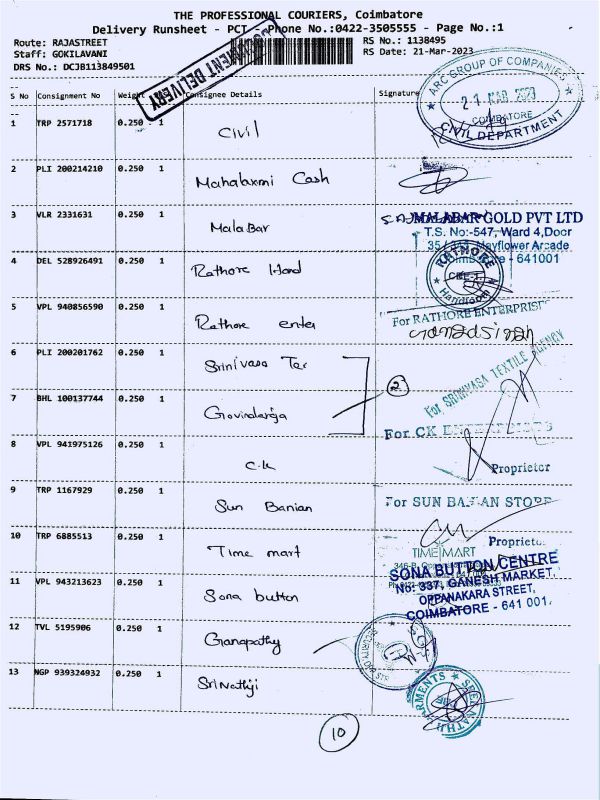 THE PROFESSIONAL COURIERS, Coimbatore
Delivery Runsheet - PCT - Phone No.:0422-3505555 - Page No.:1
Route: RAJASTREET
RS No.: 1138495
Staff: GOKILAVANI
RS Date: 21-Mar-2023
DRS No.: DCJB113849501
DOCUMENT DELIVERY
S No Consignment No Weight Consignee Details Signature
ARC GROUP OF COMPANIES
21 MAR 2023
COIMBATORE
CIVIL DEPARTMENT
1 TRP 2571718 0.250 1 Civil
2 PLI 200214210 0.250 1 Mahalaxmi Cash
3 VLR 2331631 0.250 1 Malabar
MALABAR GOLD PVT LTD
T.S. No:-547, Ward 4,Door
Mayflower Arcade
641001
4 DEL 528926491 0.250 1 Rathore Hand
RATHORE
Handloom
5 VPL 940856590 0.250 1 Rathore enter
For RATHORE ENTERPRISE
6 PLI 200201762 0.250 1 Srinivasa Tex
For SRINIVASA TEXTILE AGENCY
2
7 BHL 100137744 0.250 1 Govindaraja
For CK ENTERPRISES
8 VPL 941975126 0.250 1 C.K
Proprietor
9 TRP 1167929 0.250 1 Sun Banian
For SUN BANIAN STORE
Proprietor
10 TRP 6885513 0.250 1 Time mart
TIME MART
11 VPL 943213623 0.250 1 Sona button
SONA BUTTON CENTRE
No: 337, GANESH MARKET,
OPPANAKARA STREET,
COIMBATORE - 641 001.
12 TVL 5195906 0.250 1 Ganapathy
13 NGP 939324932 0.250 1 SriNathji
GARMENTS
10